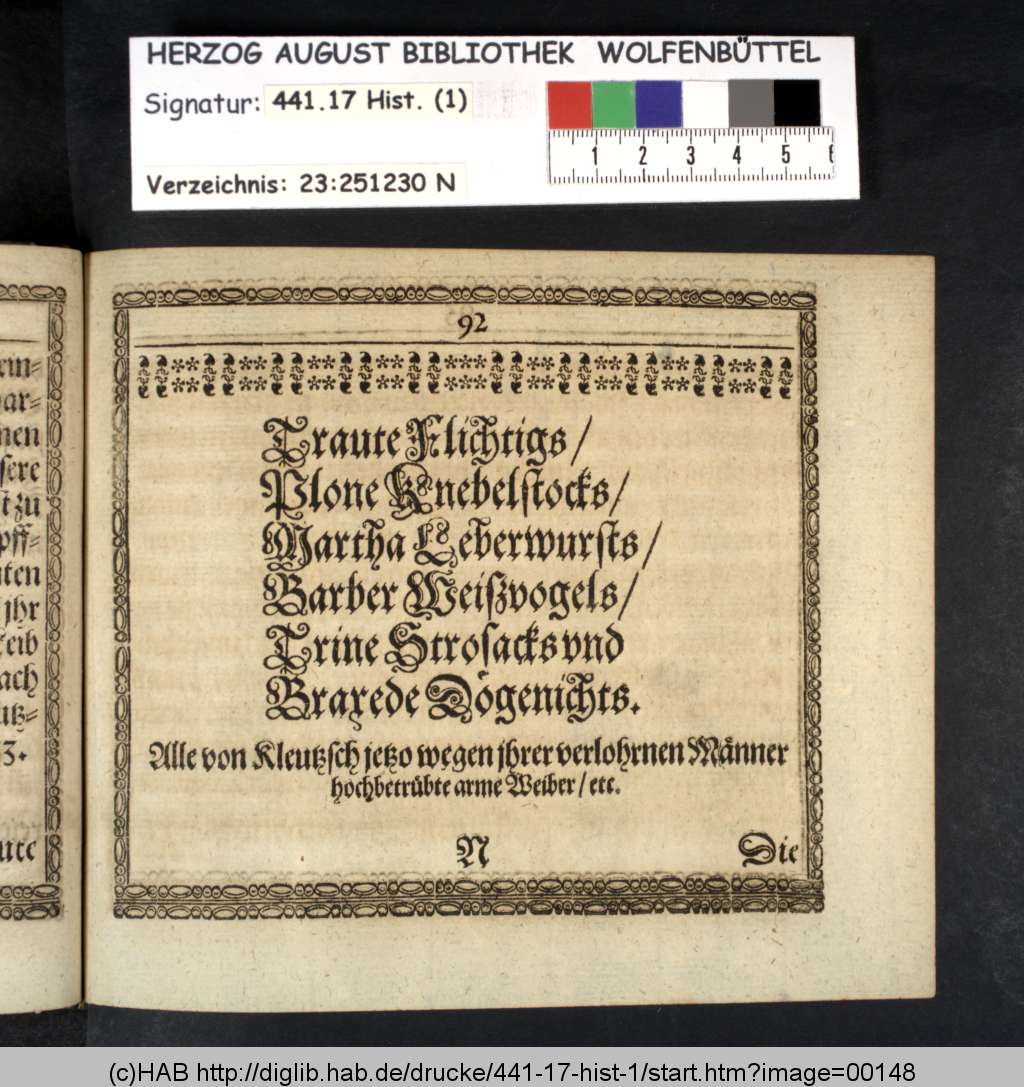 HERZOG AUGUST BIBLIOTHEK WOLFENBÜTTEL
Signatur: 441.17 Hist. (1)
Verzeichnis: 23:251230 N
1 2 3 4 5 6
92
Traute Flichtigs /
Plone Knebelstocks /
Martha Leberwursts /
Barber Weißvogels /
Trine Strosacks vnd
Braxede Dögenichts.
Alle von Kleutzsch jetzo wegen jhrer verlohrnen Männer
hochbetrübte arme Weiber / etc.
N Die
(c)HAB http://diglib.hab.de/drucke/441-17-hist-1/start.htm?image=00148